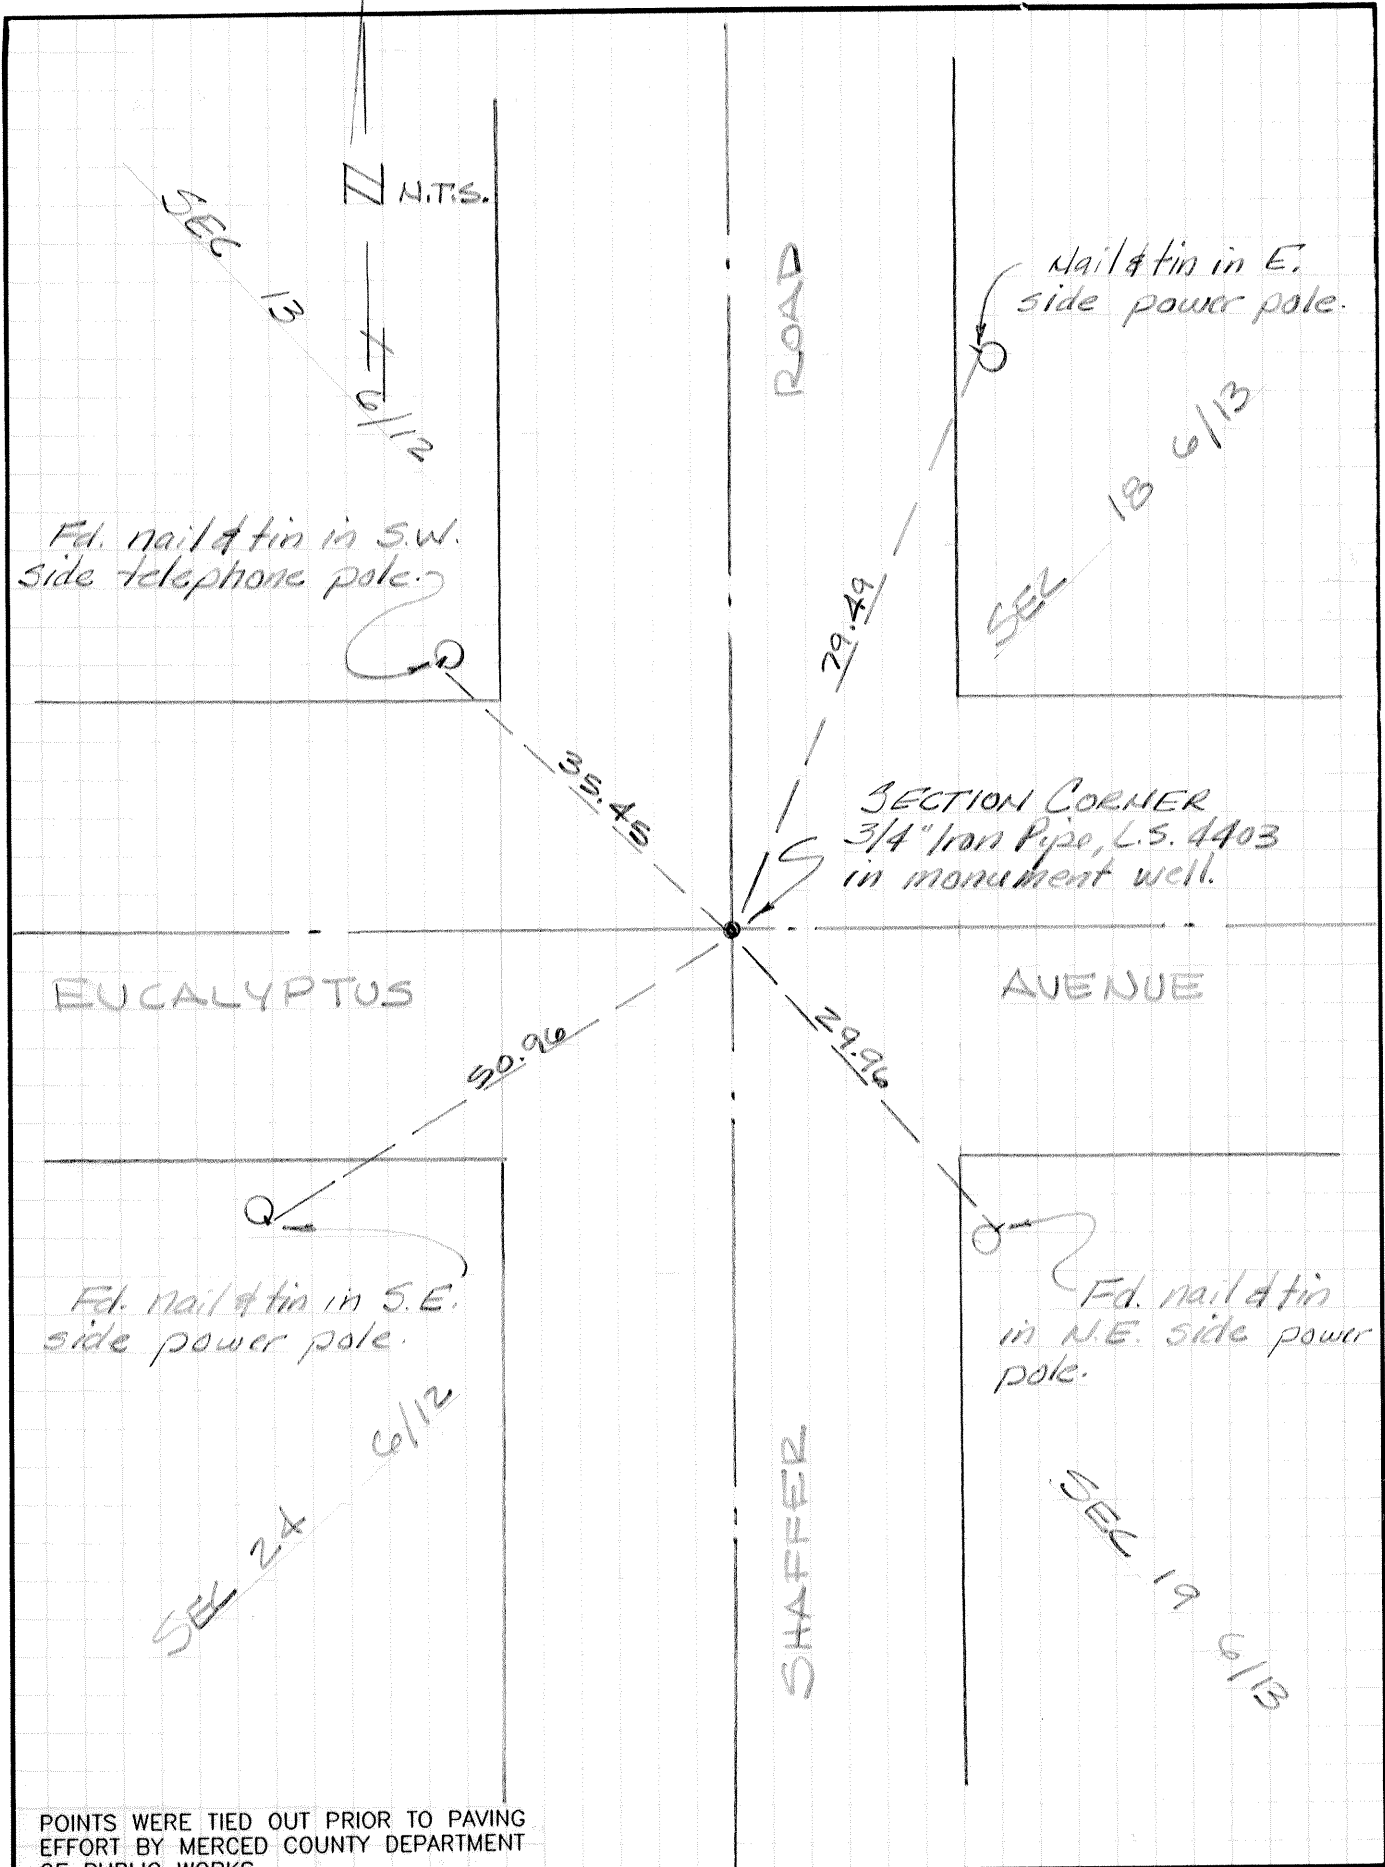 N N.T.S.
SEC 13 6/12
ROAD
Nail & tin in E.
side power pole.
SEC 18 6/13
Fd. nail & tin in S.W.
side telephone pole.
79.49
35.45
SECTION CORNER
3/4" Iron Pipe, L.S. 4403
in monument well.
EUCALYPTUS
AVENUE
50.96
29.96
Fd. nail & tin in S.E.
side power pole.
Fd. nail & tin
in N.E. side power
pole.
SEC 24 6/12
SHAFFER
SEC 19 6/13
POINTS WERE TIED OUT PRIOR TO PAVING
EFFORT BY MERCED COUNTY DEPARTMENT
OF PUBLIC WORKS